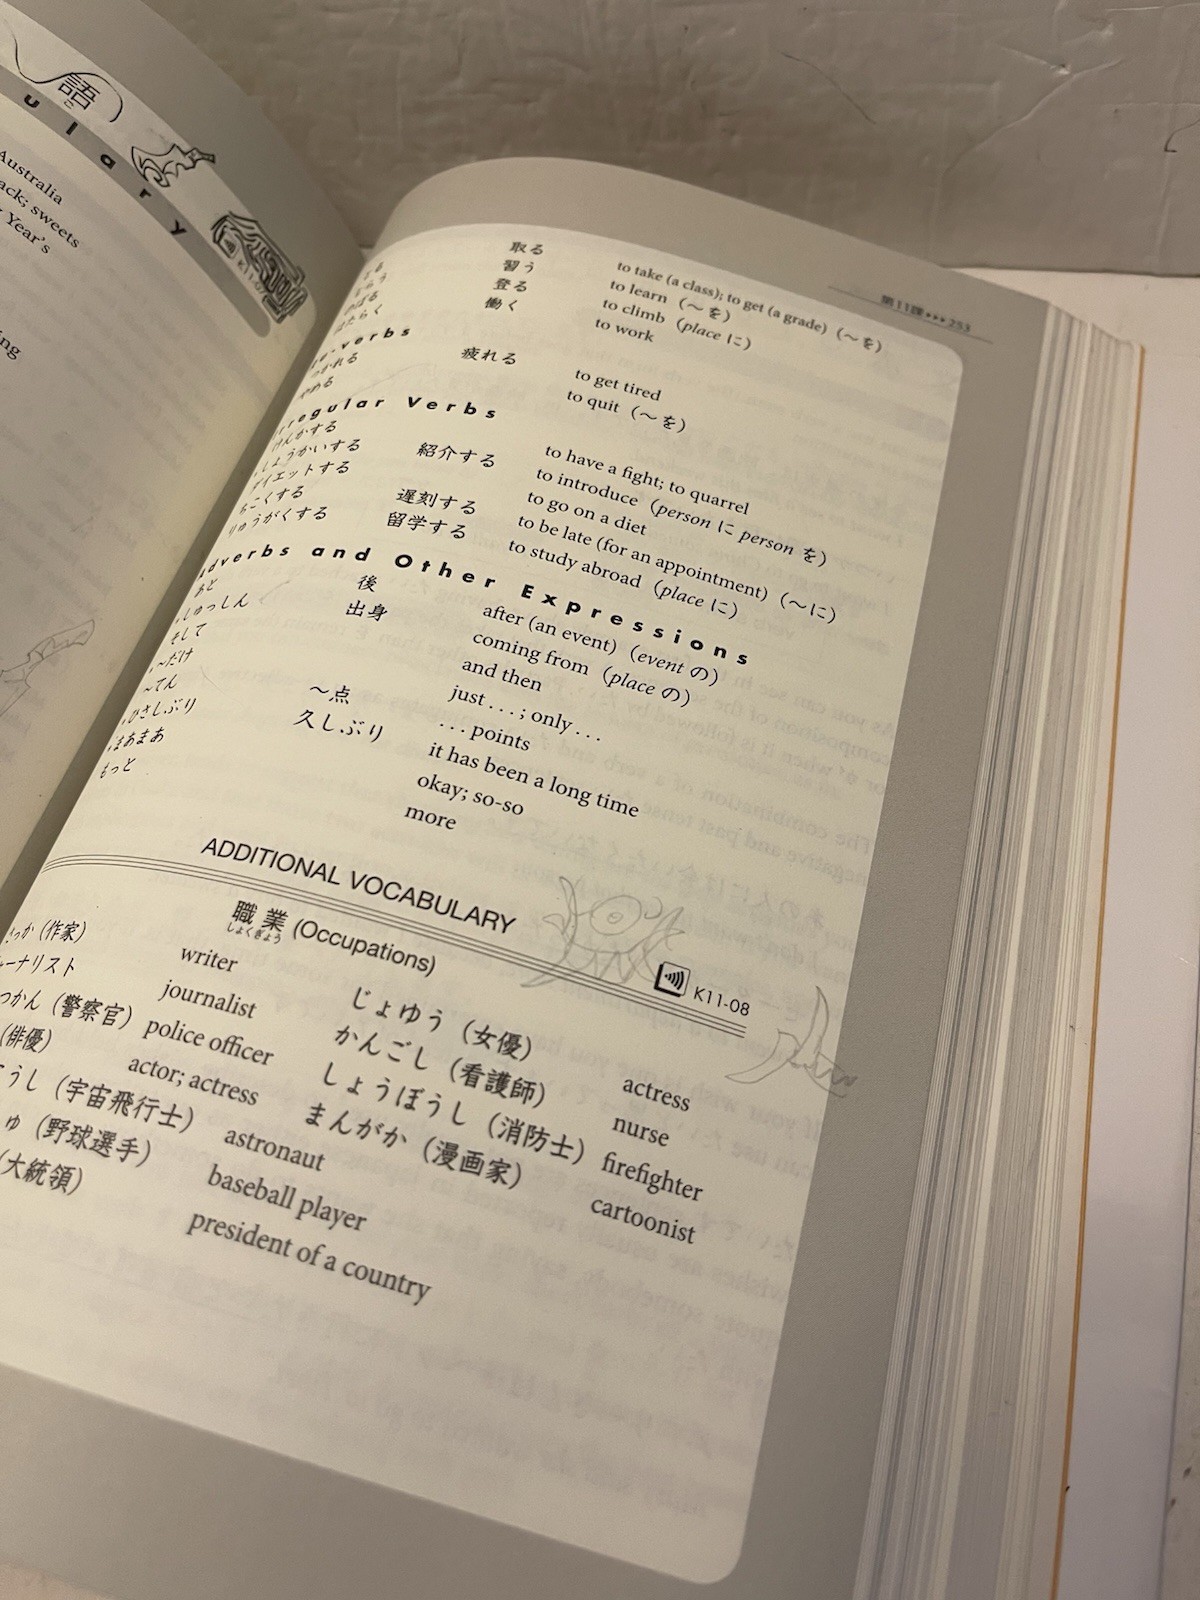 語
ご
ulary
Australia
sweets
Year's
K11-07
第11課▸▸▸253
取る to take (a class); to get (a grade) (～を)
習う to learn (～を)
のぼる 登る to climb (place に)
はたらく 働く to work
verbs
つかれる 疲れる to get tired
やめる to quit (～を)
rregular Verbs
けんかする to have a fight; to quarrel
しょうかいする 紹介する to introduce (person に person を)
ダイエットする to go on a diet
ちこくする 遅刻する to be late (for an appointment) (～に)
りゅうがくする 留学する to study abroad (place に)
dverbs and Other Expressions
あと 後 after (an event) (event の)
しゅっしん 出身 coming from (place の)
そして and then
～だけ just . . . ; only . . .
～てん ～点 . . . points
ひさしぶり 久しぶり it has been a long time
まあまあ okay; so-so
もっと more
ADDITIONAL VOCABULARY
職業 (Occupations)
しょくぎょう
K11-08
さっか (作家) writer じょゆう (女優) actress
ーナリスト journalist かんごし (看護師) nurse
つかん (警察官) police officer しょうぼうし (消防士) firefighter
(俳優) actor; actress まんがか (漫画家) cartoonist
うし (宇宙飛行士) astronaut
ゅ (野球選手) baseball player
(大統領) president of a country